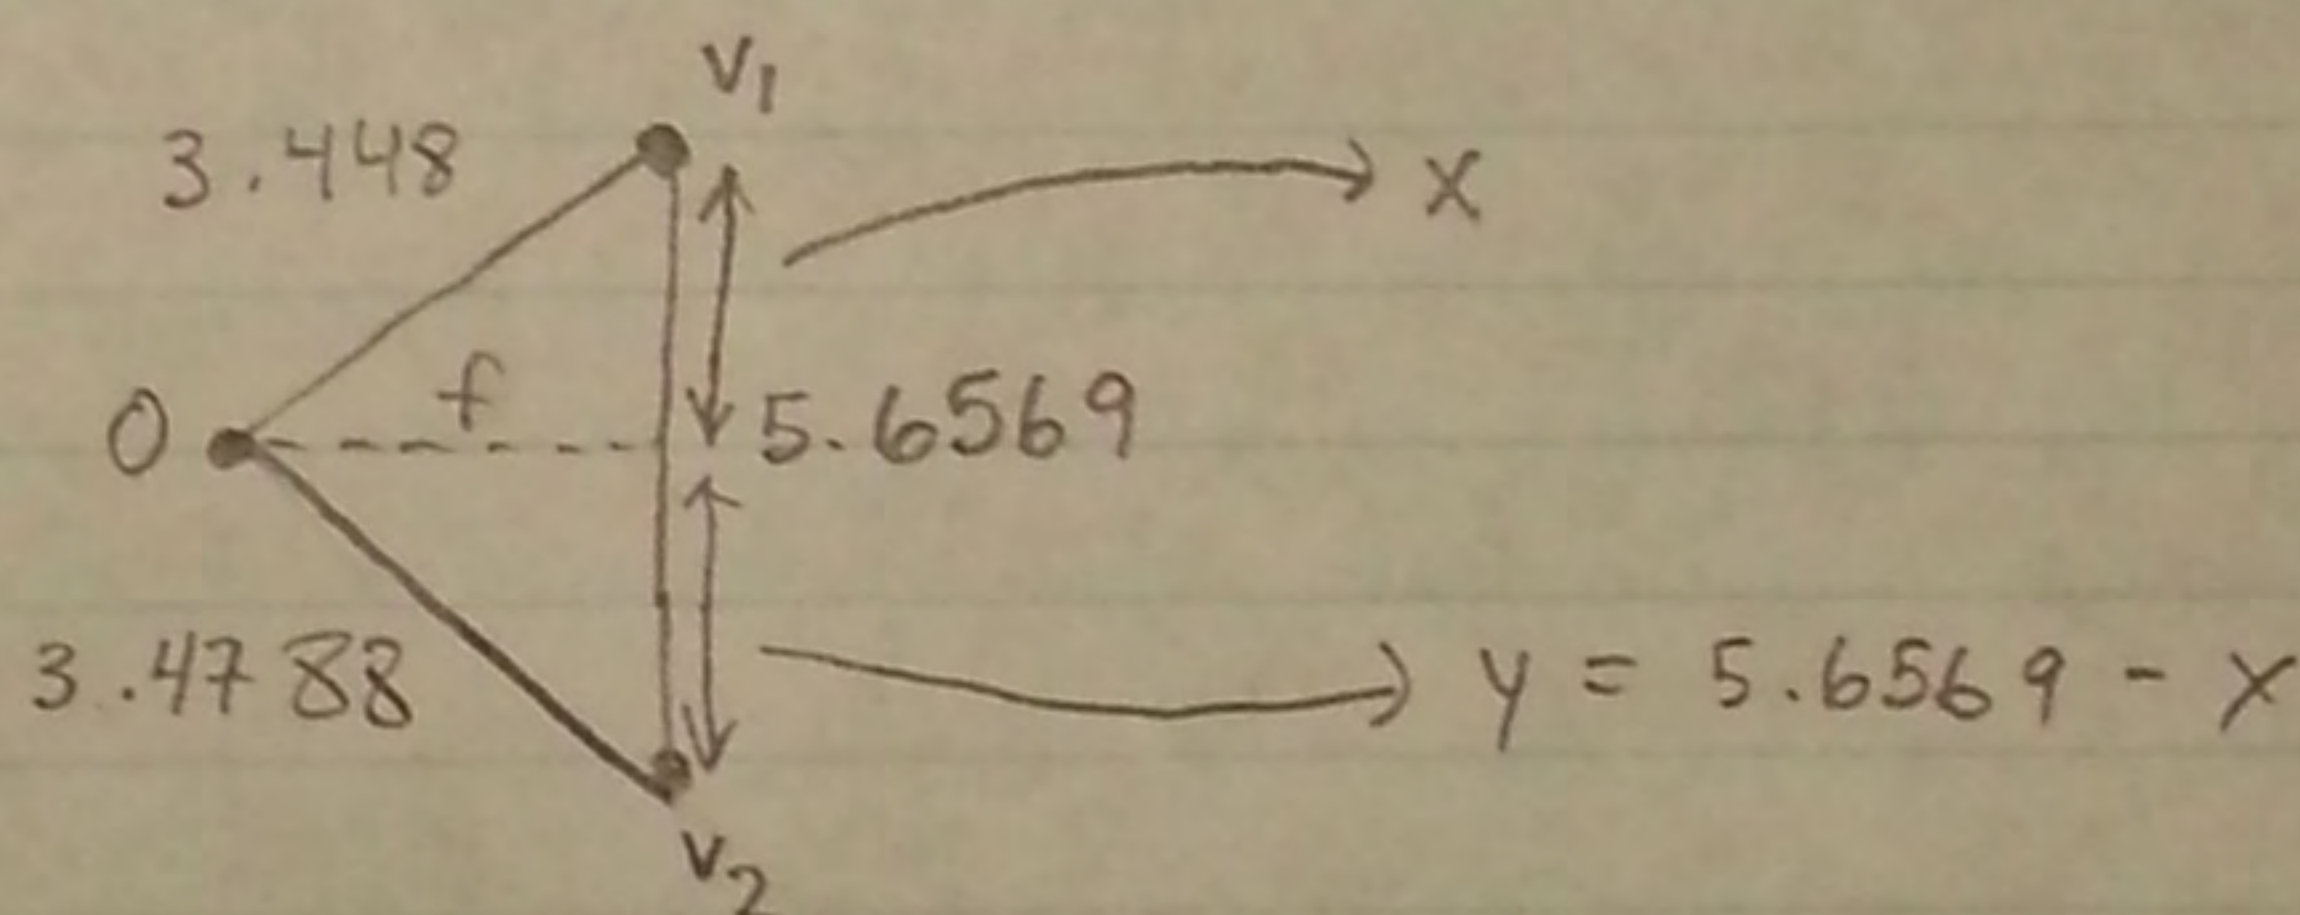 V1
3.448
x
f
O
5.6569
3.4788
y = 5.6569 - x
V2